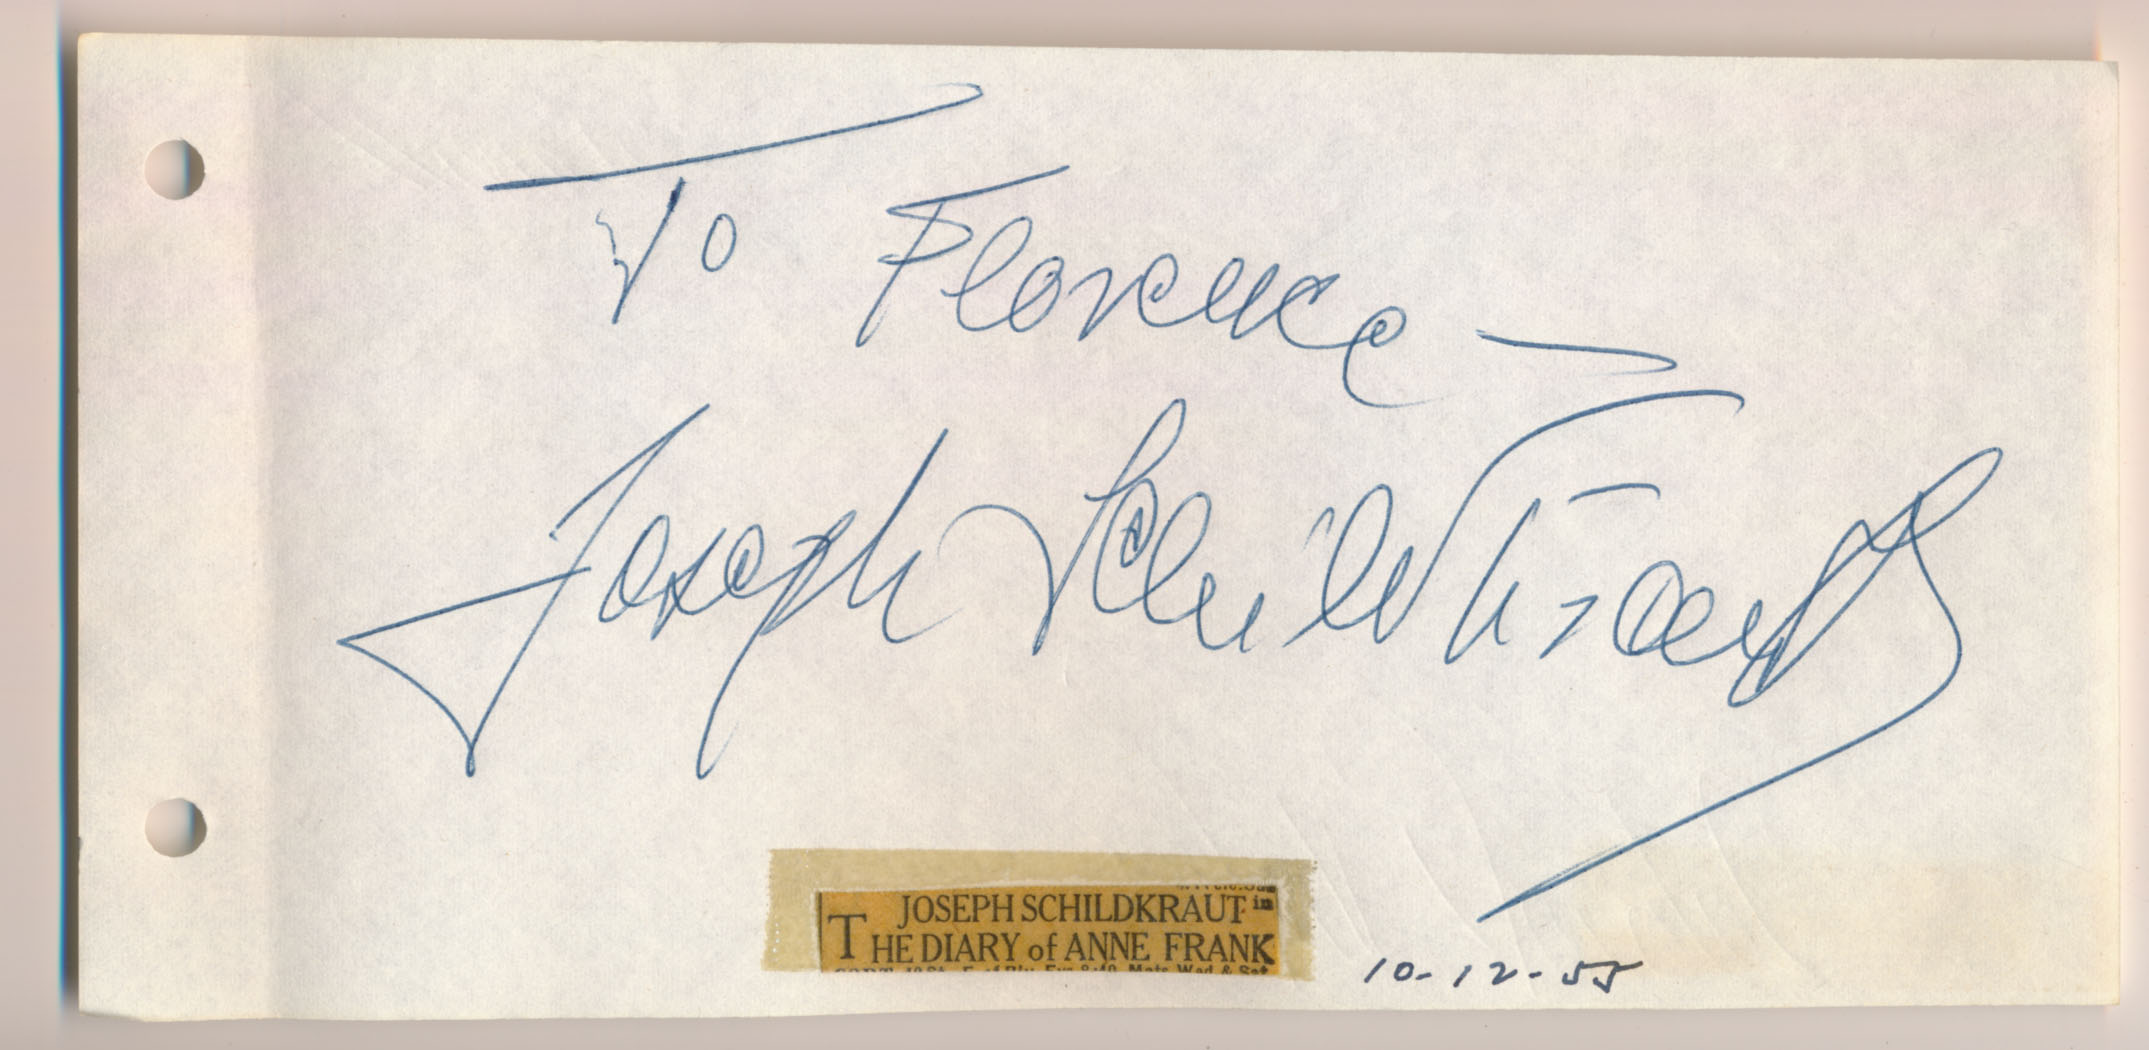 To Florence
Joseph Schildkraut
JOSEPH SCHILDKRAUT in
THE DIARY of ANNE FRANK
CORT, 48 St., E. of B'y. Evs. 8:40. Mats. Wed & Sat.
10-12-55